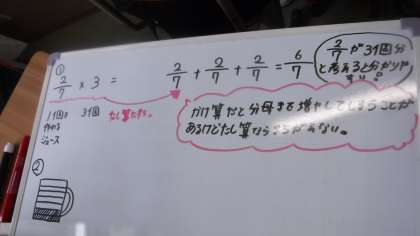 ①
2/7 × 3 = 2/7 + 2/7 + 2/7 = 6/7
2/7が3個分
と考えると分かりや
すい。
1個を 3個 たし算だと。
作れる
ジュース
かけ算だと分母まで増やしてしまうことが
あるけどたし算ならまちがえない。
②